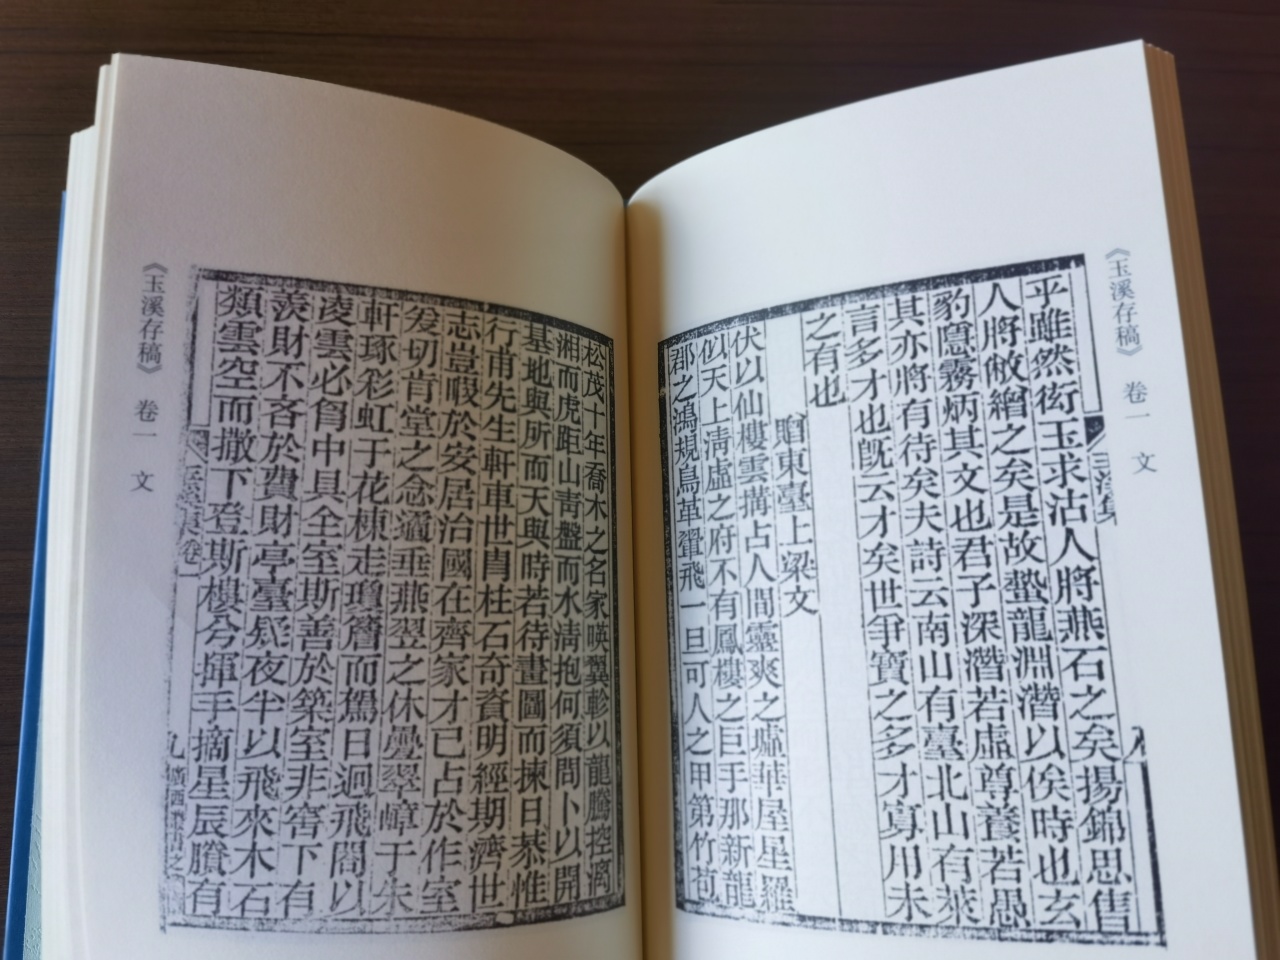 《玉溪存稿》 卷一 文
乎雖然衒玉求沽人將燕石之矣揚錦思售
人將敝繒之矣是故蟄龍淵潛以俟時也玄
豹隱霧炳其文也君子深潛若虛尊養若愚
其亦將有待矣夫詩云南山有臺北山有萊
言多才也旣云才矣世爭寶之多才寡用未
之有也
賵東臺上梁文
伏以仙樓雲搆占人間靈爽之墟華屋星羅
似天上淸虛之府不有鳳樓之巨手那新龍
郡之鴻規鳥革翬飛一旦可人之甲第竹苞
松茂十年喬木之名家暎翼軫以龍騰控漓
湘而虎踞山靑盤而水淸抱何須問卜以開
基地與所而天與時若待畫圖而揀日恭惟
行甫先生軒車世胄柱石奇資明經期濟世
志豈暇於安居治國在齊家才已占於作室
爰切肯堂之念遹垂燕翌之休疊翠嶂于朱
軒琢彩虹于花棟走瓊簷而駕日迥飛閣以
凌雲必胷中具全至斯善於築室非窖下有
羨財不吝於費財亭臺疑夜半以飛來木石
類雲空而撒下登斯樓兮揮手摘星辰騰有
《玉溪存稿》 卷一 文